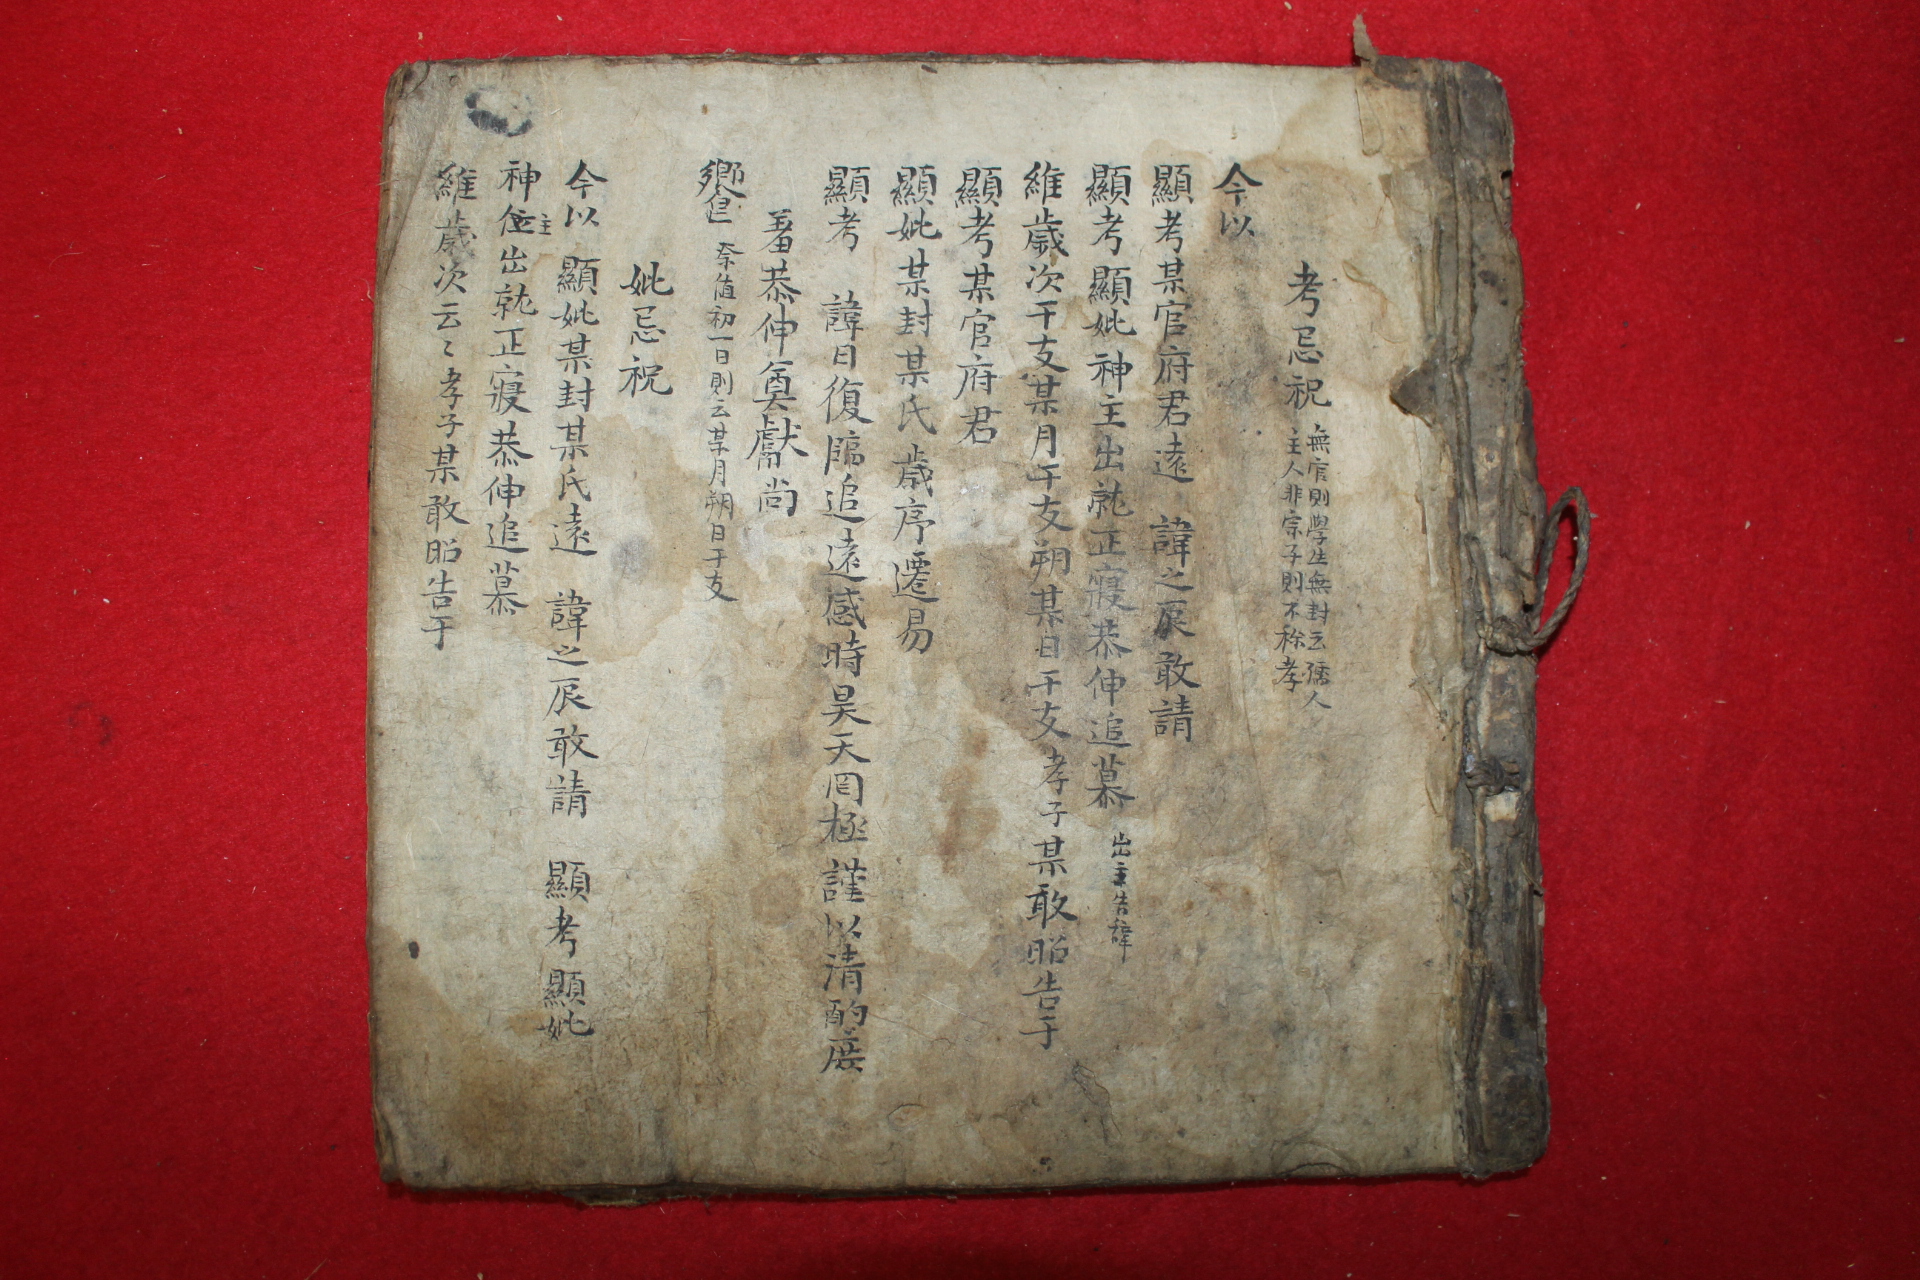 考忌祝 無官則學生無封云孺人
主人非宗子則不称孝
今以
顯考某官府君遠 諱之辰敢請
顯考顯妣神主出就正寢恭伸追慕 出主告諱
維歲次干支某月干支朔某日干支孝子某敢昭告于
顯考某官府君
顯妣某封某氏歲序遷易
顯考 諱日復臨追遠感時昊天罔極謹以清酌庶
羞恭伸奠獻尚
饗 奈値初一日則云某月朔日干支
妣忌祝
今以 顯妣某封某氏遠 諱之辰敢請 顯考顯妣
神位主出就正寢恭伸追慕
維歲次云〻孝子某敢昭告于